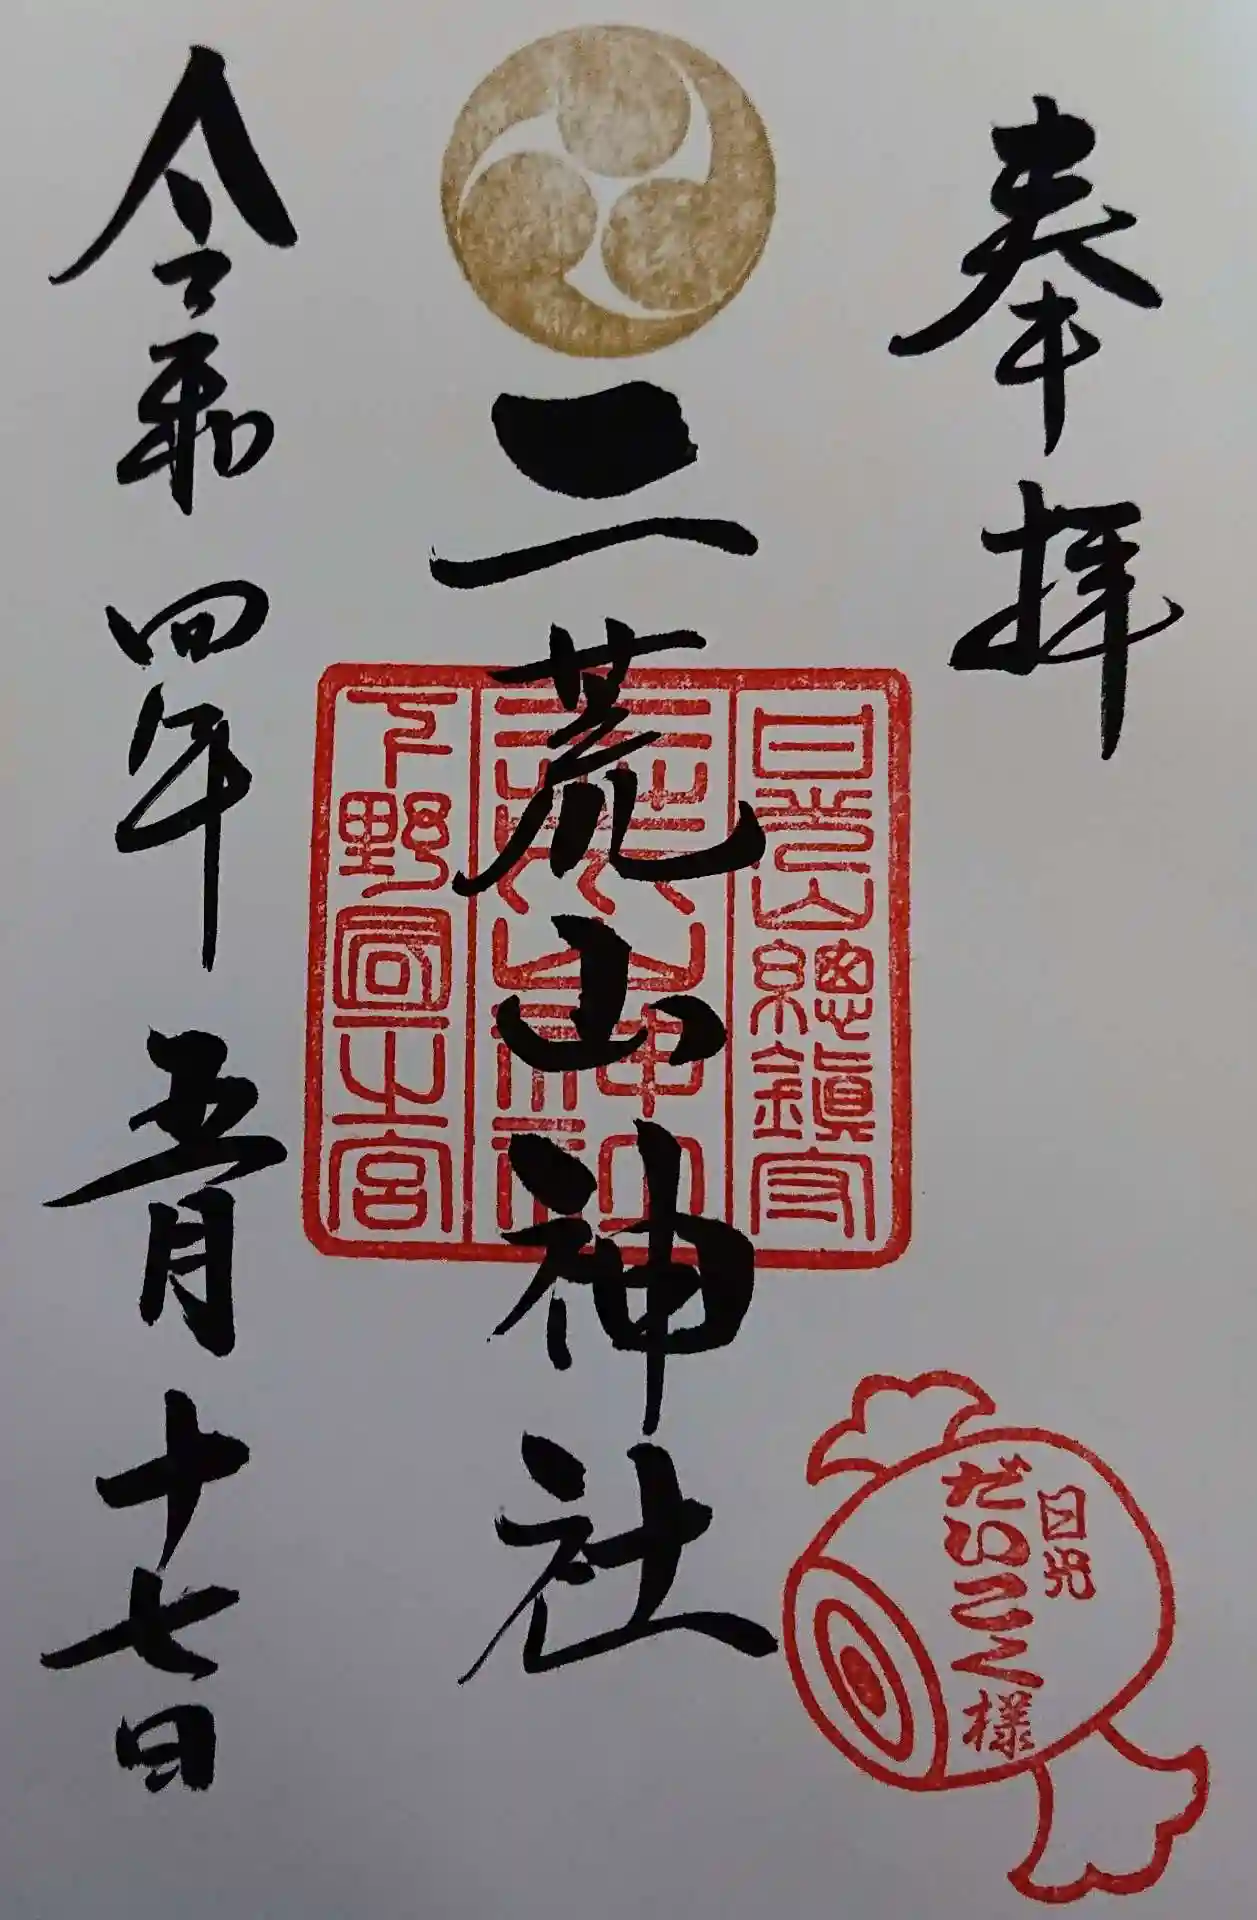 奉拝
日光山總鎮守
二荒山神社
二荒山神社
下野國一之宮
令和四年五月十七日
日光
だいこく様